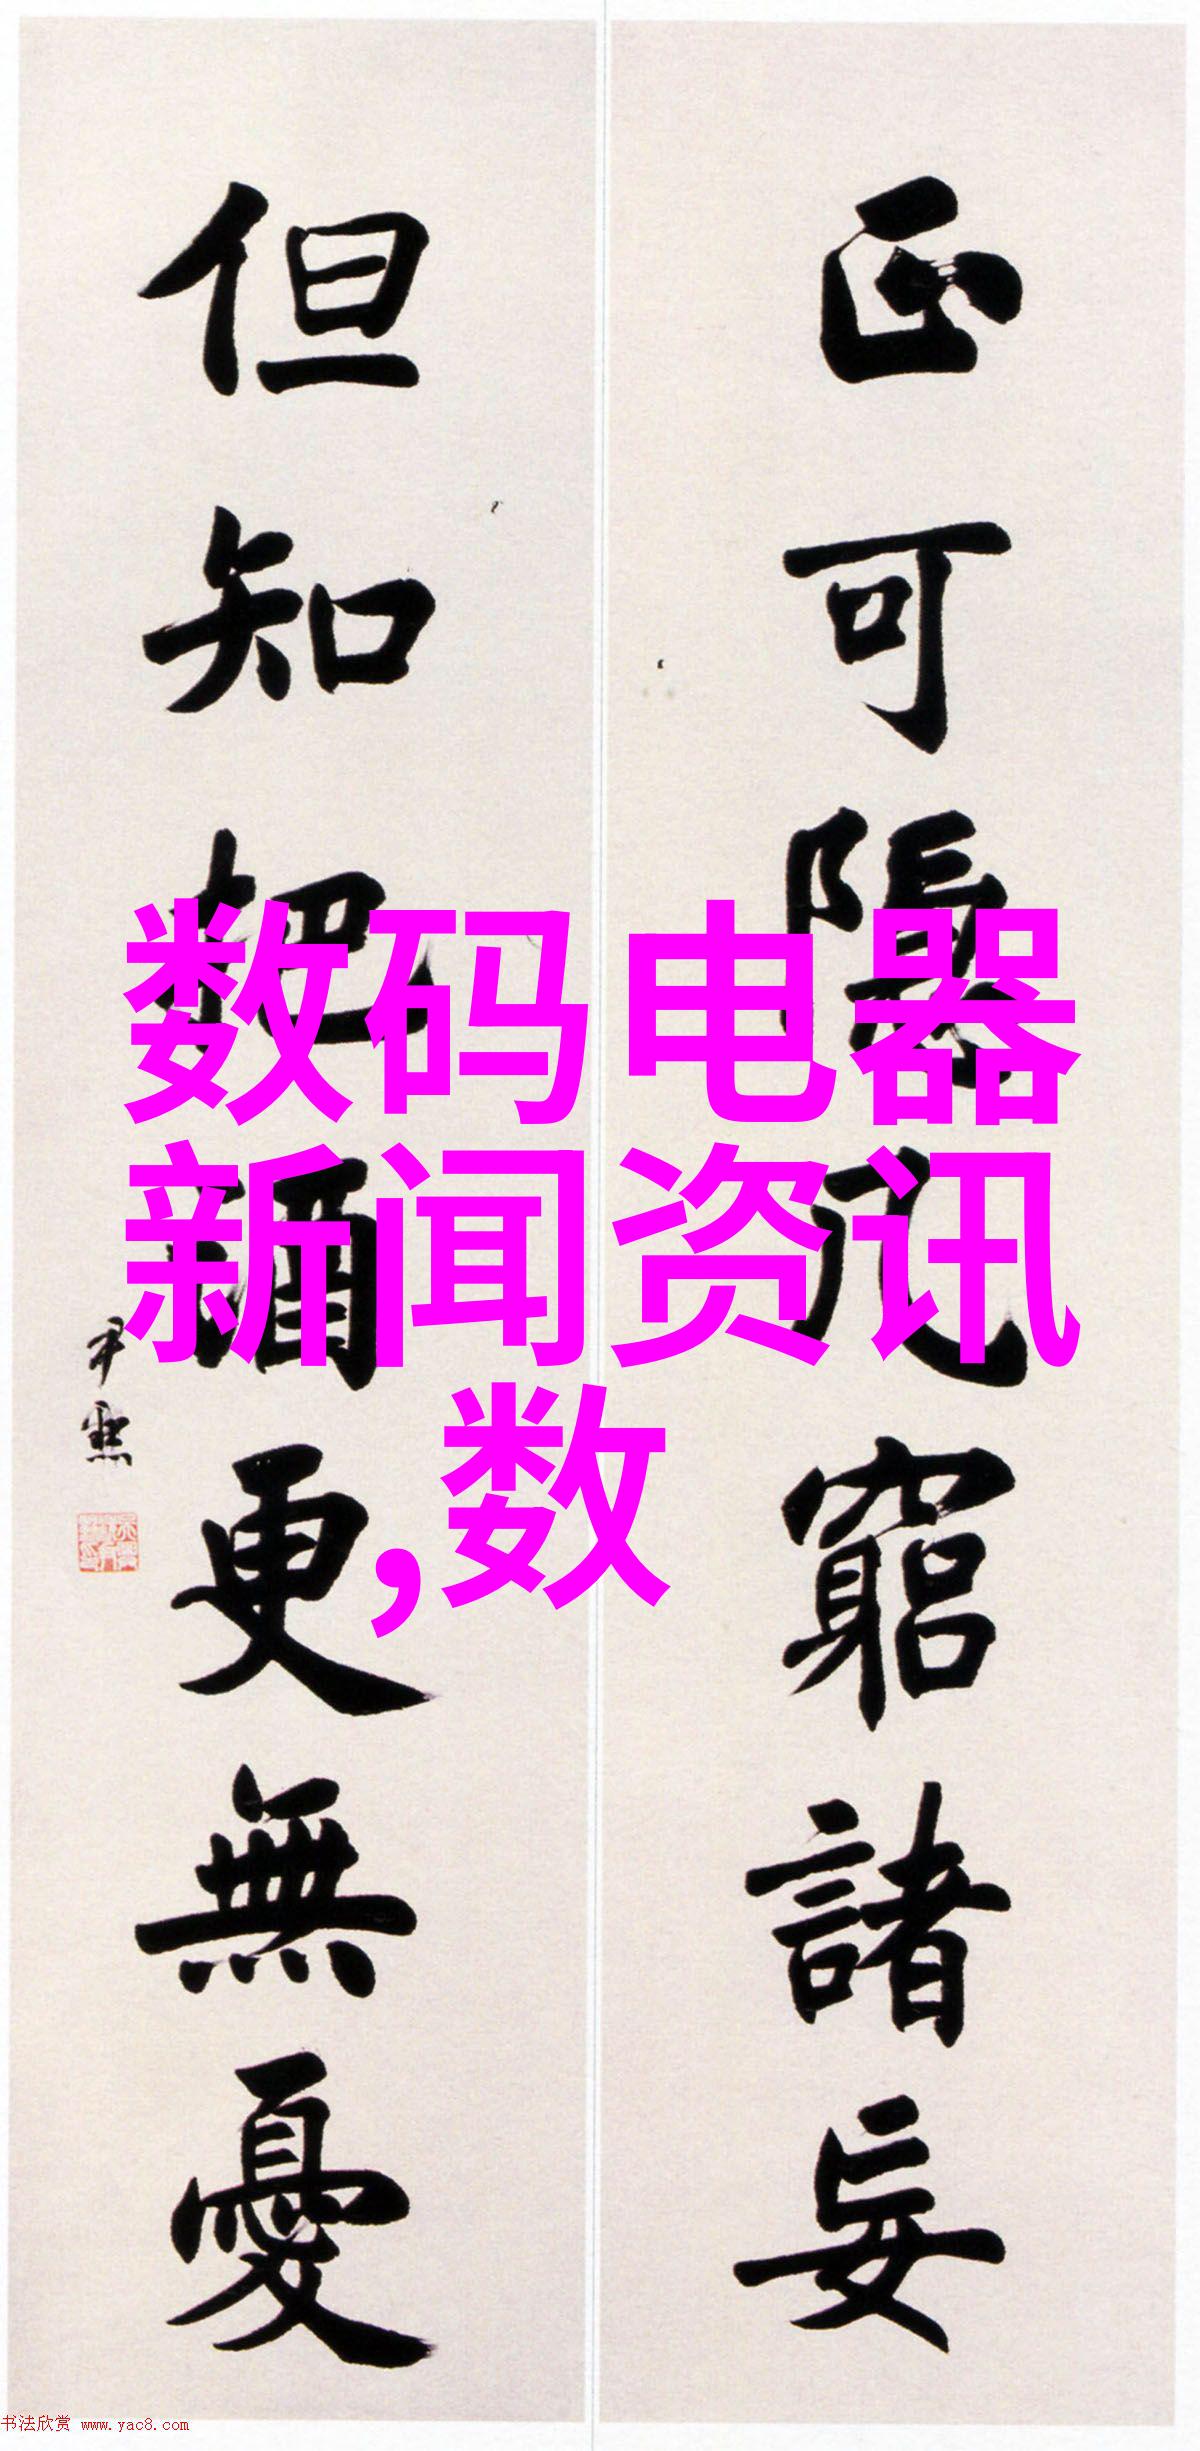 正可隱几窮諸妄
但知把酒更無憂
尹默
数码电器
新闻资讯
,数
书法欣赏 www.yac8.com